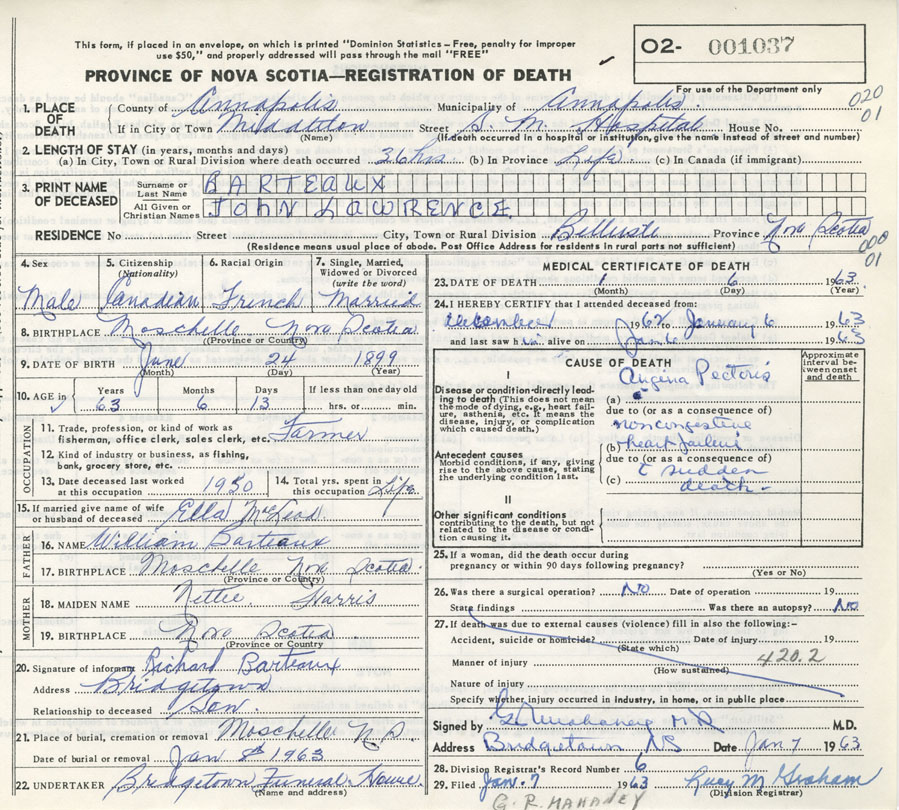 This form, if placed in an envelope, on which is printed "Dominion Statistics - Free, penalty for improper
use $50," and properly addressed will pass through the mail "FREE"
O2- 001037
PROVINCE OF NOVA SCOTIA—REGISTRATION OF DEATH
For use of the Department only
020
01
1. PLACE OF DEATH
County of Annapolis Municipality of Annapolis.
If in City or Town Middleton Street S. M. Hospital House No.
(Name) (If death occurred in a hospital or institution, give name instead of street and number)
2. LENGTH OF STAY (in years, months and days)
(a) In City, Town or Rural Division where death occurred 36 hrs (b) In Province Life (c) In Canada (if immigrant)
3. PRINT NAME OF DECEASED
Surname or Last Name BARTEAUX
All Given or Christian Names JOHN LAWRENCE
RESIDENCE No Street City, Town or Rural Division Province Nova Scotia
(Residence means usual place of abode. Post Office Address for residents in rural parts not sufficient)
000
01
4. Sex Male
5. Citizenship (Nationality) Canadian
6. Racial Origin French
7. Single, Married, Widowed or Divorced (write the word) Married
8. BIRTHPLACE Moschelle Nova Scotia
(Province or Country)
9. DATE OF BIRTH June 24 1899
(Month) (Day) (Year)
10. AGE in Years 63 Months 6 Days 13 If less than one day old hrs. or min.
OCCUPATION
11. Trade, profession, or kind of work as
fisherman, office clerk, sales clerk, etc. Farmer
12. Kind of industry or business, as fishing,
bank, grocery store, etc.
13. Date deceased last worked
at this occupation 1950
14. Total yrs. spent in
this occupation Life
15. If married give name of wife
or husband of deceased Ella McLeod
FATHER
16. NAME William Barteaux
17. BIRTHPLACE Moschelle Nova Scotia.
(Province or Country)
MOTHER
18. MAIDEN NAME Nettie Harris
19. BIRTHPLACE Nova Scotia
(Province or Country
20. Signature of informant Richard Barteaux
Address Bridgetown
Relationship to deceased Son
21. Place of burial, cremation or removal Moschelle N S
Date of burial or removal Jan 8 1963
22. UNDERTAKER Bridgetown Funeral Home
(Name and address)
MEDICAL CERTIFICATE OF DEATH
23. DATE OF DEATH 1 6 1963
(Month) (Day) (Year)
24. I HEREBY CERTIFY that I attended deceased from:
December 1962 to January 6 1963
and last saw him alive on Jan 6 1963
CAUSE OF DEATH
Approximate interval between onset and death
I
Disease or condition directly leading to death (This does not mean the mode of dying, e.g., heart failure, asthenia, etc. It means the disease, injury, or complication which caused death.)
(a) Angina Pectoris
due to (or as a consequence of)
noncongestive
Antecedent causes
Morbid conditions, if any, giving rise to the above cause, stating the underlying condition last.
(b) heart failure
due to (or as a consequence of)
(c) sudden
death -
II
Other significant conditions
contributing to the death, but not related to the disease or condition causing it.
25. If a woman, did the death occur during
pregnancy or within 90 days following pregnancy?
(Yes or No)
26. Was there a surgical operation? No Date of operation 19
State findings Was there an autopsy? No
27. If death was due to external causes (violence) fill in also the following:-
Accident, suicide or homicide? Date of injury 19
(State which)
Manner of injury 420.2
(How sustained)
Nature of injury
Specify whether injury occurred in industry, in home, or in public place
Signed by M.D. M.D.
Address Bridgetown NS Date Jan 7 1963
28. Division Registrar's Record Number 6
29. Filed Jan. 7 1963 Lucy M Graham
(Division Registrar)
G. R. MAHANEY